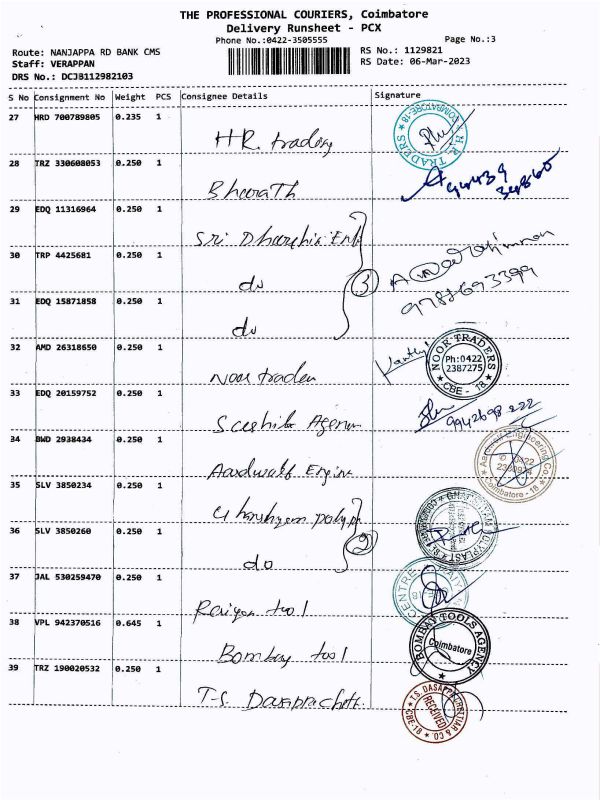 THE PROFESSIONAL COURIERS, Coimbatore
Delivery Runsheet - PCX
Phone No.:0422-3505555
Page No.:3
Route: NANJAPPA RD BANK CMS
RS No.: 1129821
Staff: VERAPPAN
RS Date: 06-Mar-2023
DRS No.: DCJB112982103
S No Consignment No Weight PCS Consignee Details Signature
27 HRD 700789805 0.235 1
HR. trading
H.R. TRADERS COIMBATORE-18
28 TRZ 330608053 0.250 1
BharaTh
94439
34865
29 EDQ 11316964 0.250 1
Sri
30 TRP 4425681 0.250 1
do
3
31 EDQ 15871858 0.250 1
do
32 AMD 26318650 0.250 1
Noor traders
NOOR TRADERS
Ph:0422
2387275
CBE - 18
33 EDQ 20159752 0.250 1
9942698222
34 BWD 2938434 0.250 1
Engine
Engineering Co.
0422
Coimbatore - 18
35 SLV 3850234 0.250 1
36 SLV 3850260 0.250 1
do
2
37 JAL 530259470 0.250 1
tool
CENTRE
38 VPL 942370516 0.645 1
Bombay tool
BOMBAY TOOLS AGENCY
Coimbatore
39 TRZ 190020532 0.250 1
T.S.
T.S. DASAPPA CHETTIAR & CO.
RECEIVED
CBE-18